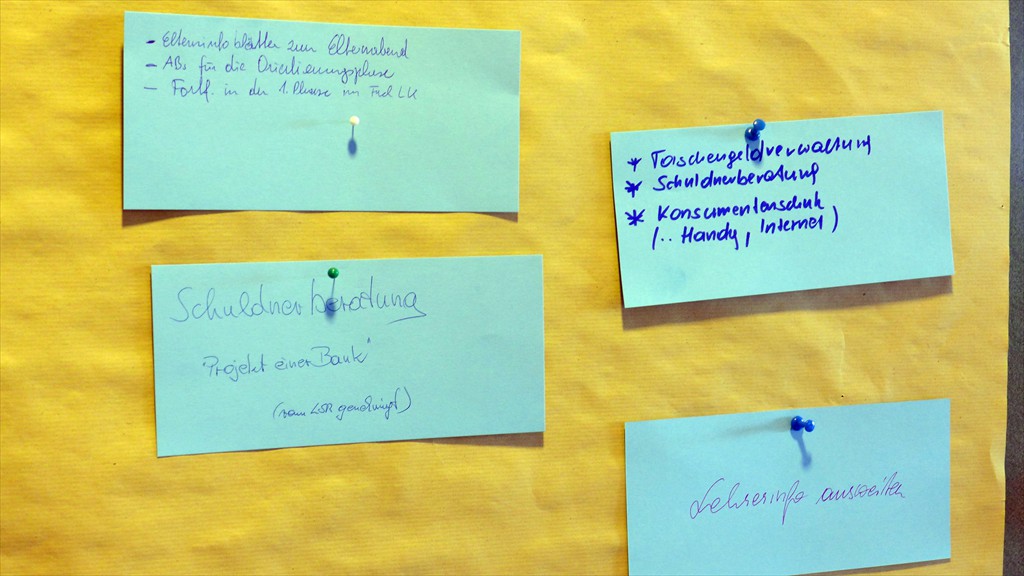 - Elterninfoblätter zum Elternabend
- ABs für die Orientierungsphase
- Fortf. in der 1. Phase im
Schuldnerberatung
"Projekt einer Bank"
(vom LSR genehmigt)
* Taschengeldverwaltung
* Schuldnerberatung
* Konsumentenschutz
(.. Handy, Internet)
Lehrerinfo ausweiten